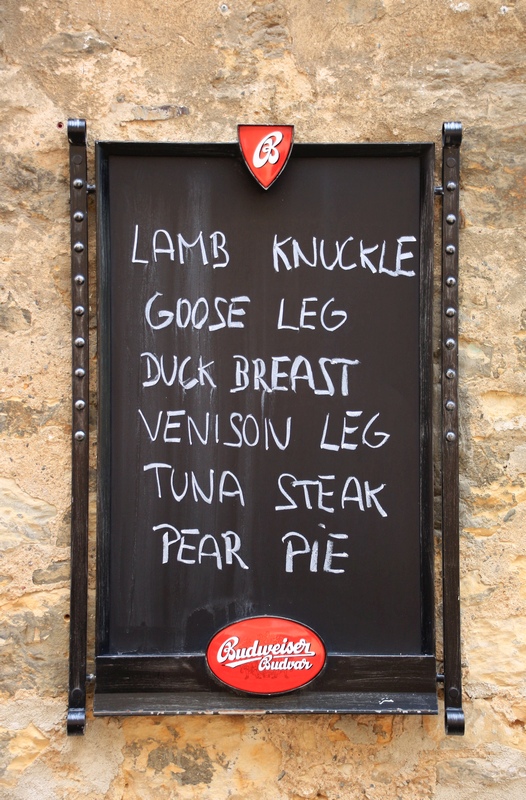 B
LAMB KNUCKLE
GOOSE LEG
DUCK BREAST
VENISON LEG
TUNA STEAK
PEAR PIE
Budweiser
Budvar